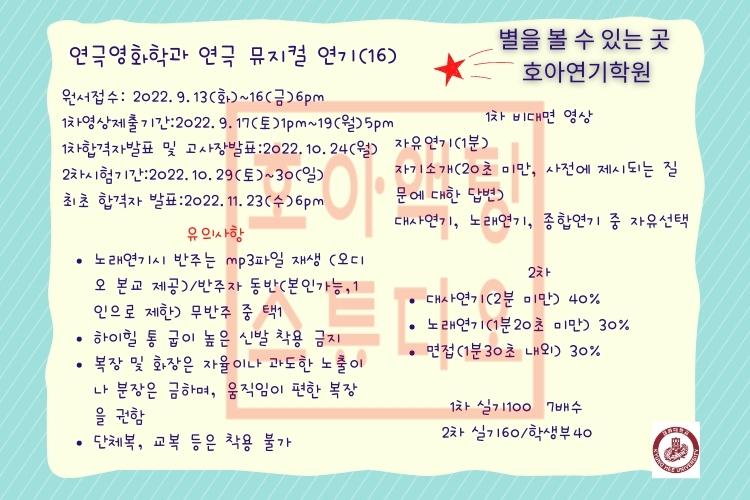 연극영화학과 연극 뮤지컬 연기(16)
별을 볼 수 있는 곳
호아연기학원
원서접수: 2022.9.13(화)~16(금)6pm
1차영상제출기간:2022.9.17(토)1pm~19(월)5pm
1차합격자발표 및 고사장발표:2022.10.24(월)
2차시험기간:2022.10.29(토)~30(일)
최초 합격자 발표:2022.11.23(수)6pm
유의사항
• 노래연기시 반주는 mp3파일 재생 (오디
오 본교 제공)/반주자 동반(본인가능,1
인으로 제한) 무반주 중 택1
• 하이힐 통 굽이 높은 신발 착용 금지
• 복장 및 화장은 자율이나 과도한 노출이
나 분장은 금하며, 움직임이 편한 복장
을 권함
• 단체복, 교복 등은 착용 불가
1차 비대면 영상
자유연기(1분)
자기소개(20초 미만, 사전에 제시되는 질
문에 대한 답변)
대사연기, 노래연기, 종합연기 중 자유선택
2차
• 대사연기(2분 미만) 40%
• 노래연기(1분20초 미만) 30%
• 면접(1분30초 내외) 30%
1차 실기100 7배수
2차 실기60/학생부40
호아액팅
스튜디오
KYUNG HEE UNIVERSITY